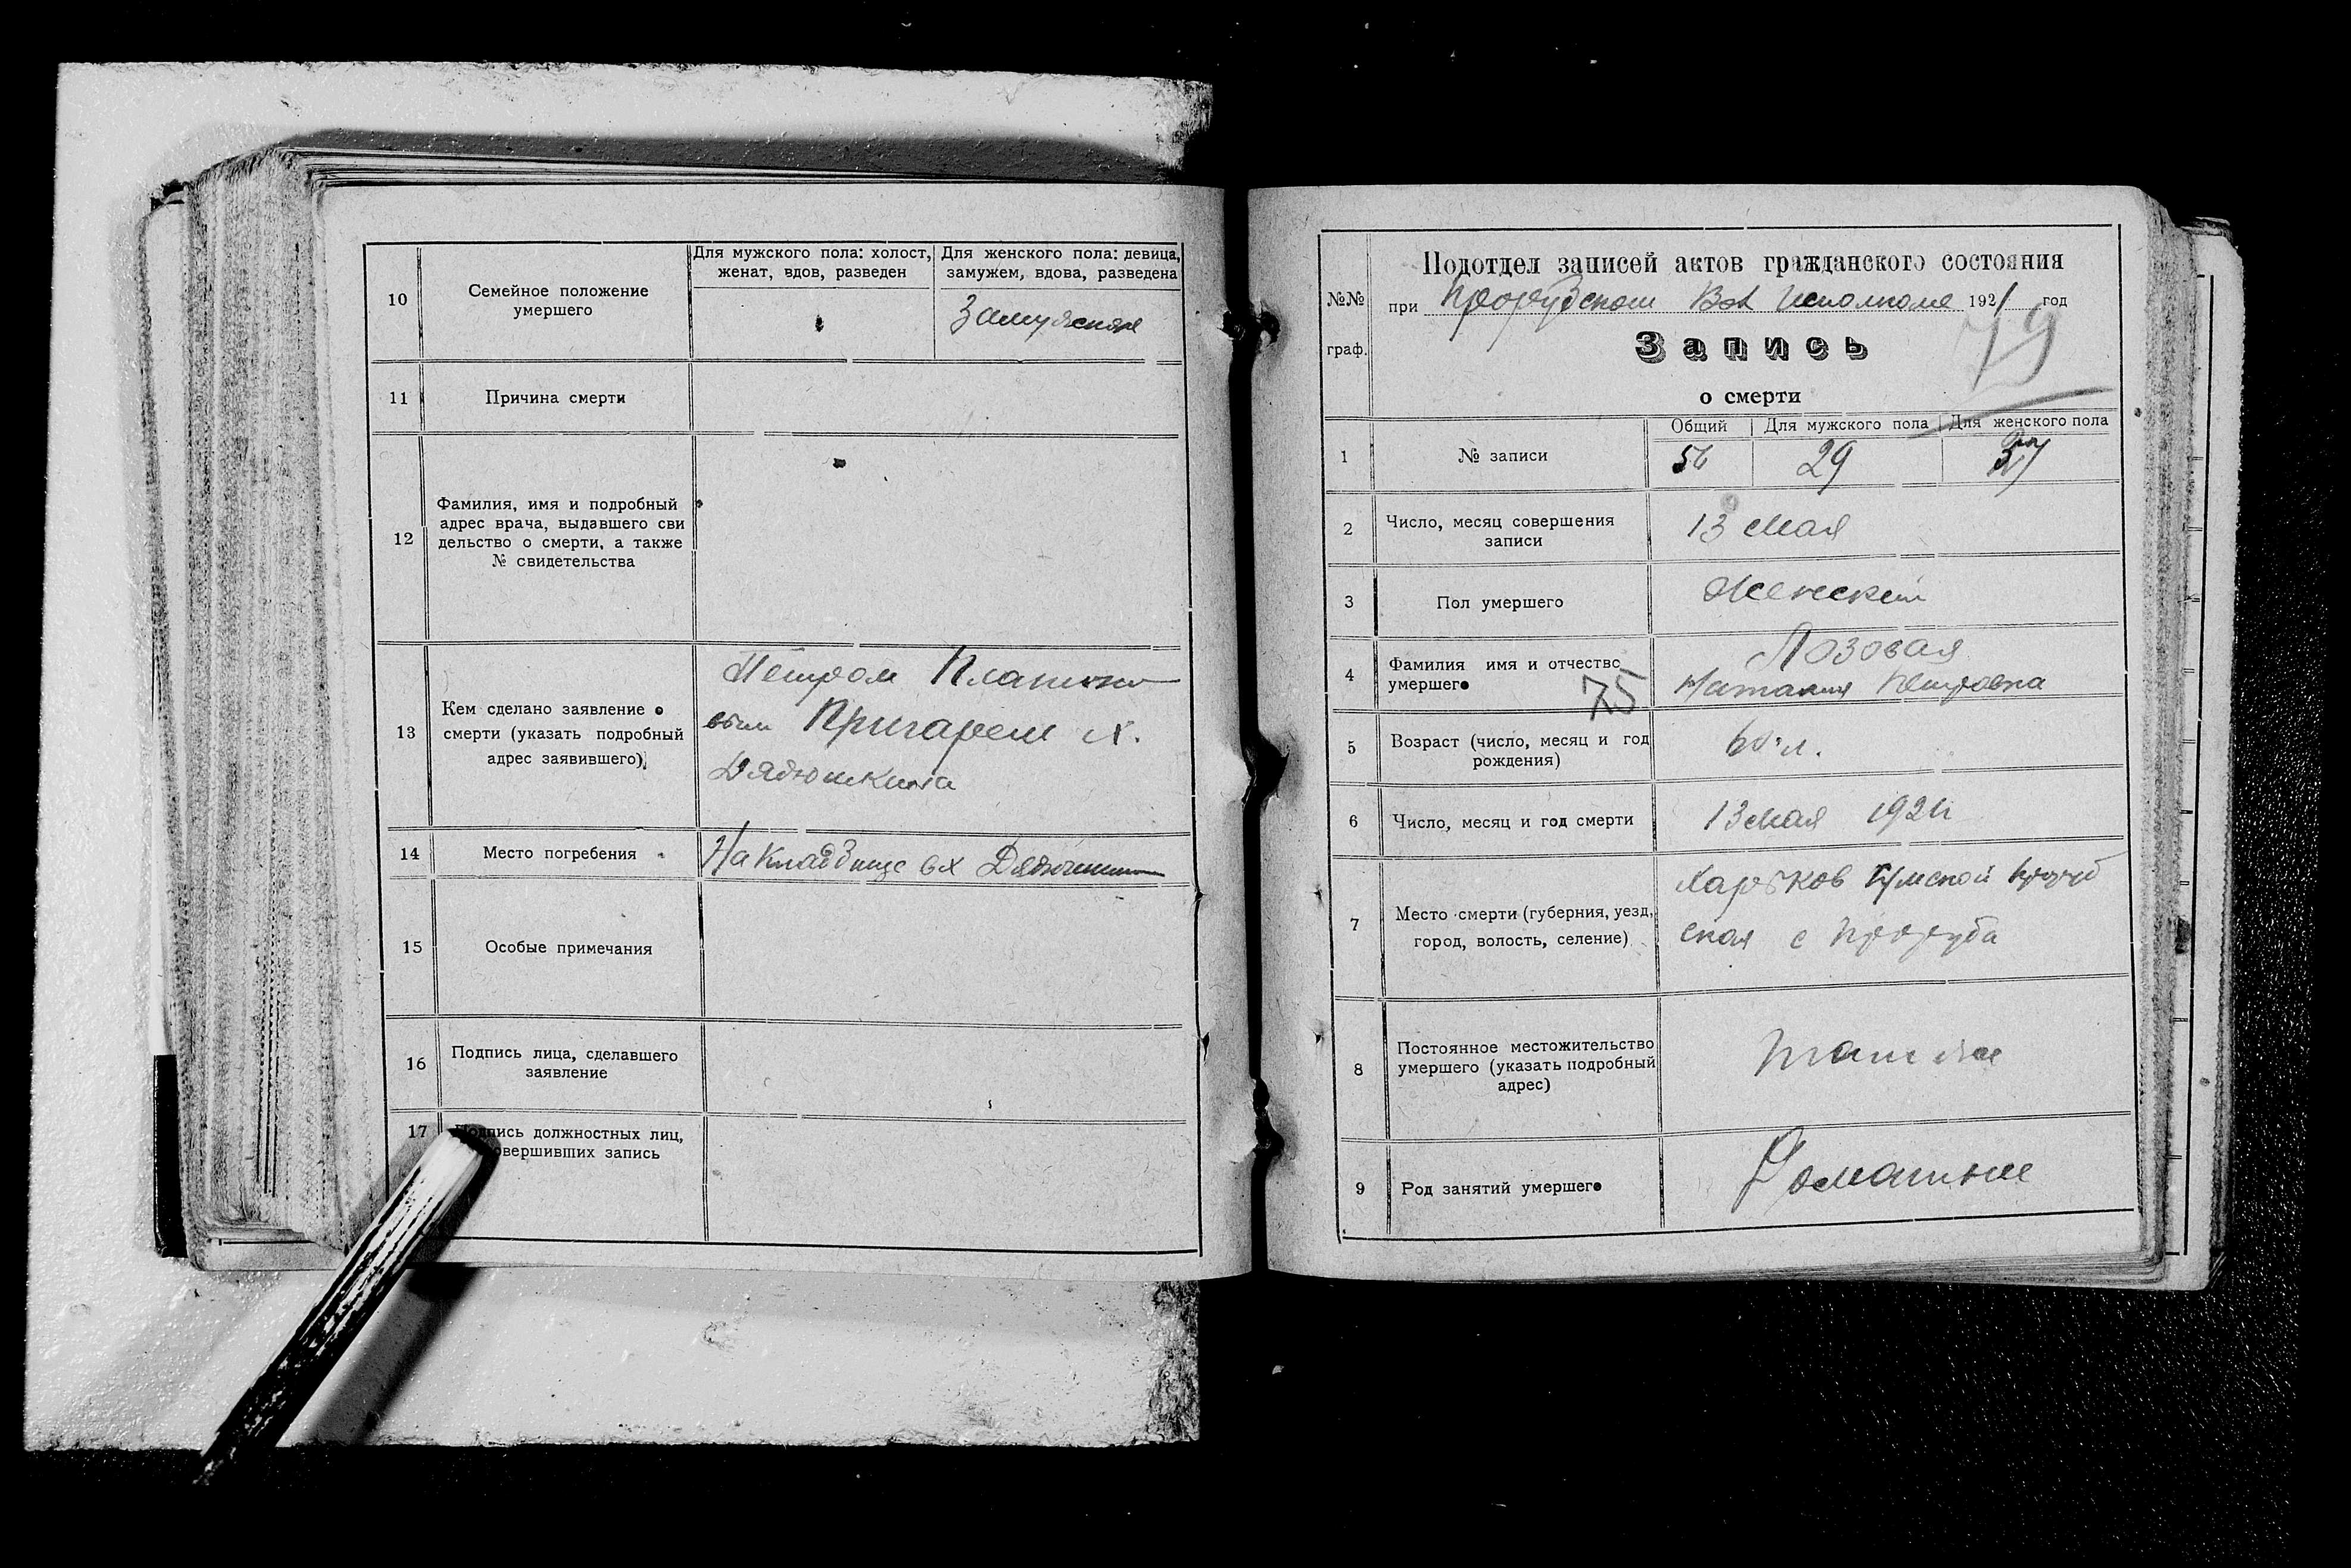 10
Семейное положение
умершего
Для мужского пола: холост,
женат, вдов, разведен
Для женского пола: девица,
замужем, вдова, разведена
Замужняя
11
Причина смерти
12
Фамилия, имя и подробный
адрес врача, выдавшего сви
дельство о смерти, а также
№ свидетельства
13
Кем сделано заявление о
смерти (указать подробный
адрес заявившего)
Петром Платоно
вым Пригарем х.
Дядюшкина
14
Место погребения
На кладбище в х
15
Особые примечания
16
Подпись лица, сделавшего
заявление
17
Подпись должностных лиц,
совершивших запись
№№
граф.
Подотдел записей актов гражданского состояния
при Прорубском Вол Исполкоме 1921 год
79
Запись
о смерти
1
№ записи
Общий
Для мужского пола
Для женского пола
56
29
2
Число, месяц совершения
записи
13 Мая
3
Пол умершего
Женский
4
Фамилия имя и отчество
умершего
75
Лозовая
Наталия Петровна
5
Возраст (число, месяц и год
рождения)
60 л.
6
Число, месяц и год смерти
13 Мая
7
Место смерти (губерния, уезд,
город, волость, селение)
Харьков Сумской Проруб
ская с Проруба
8
Постоянное местожительство
умершего (указать подробный
адрес)
там же
9
Род занятий умершего
Домашние